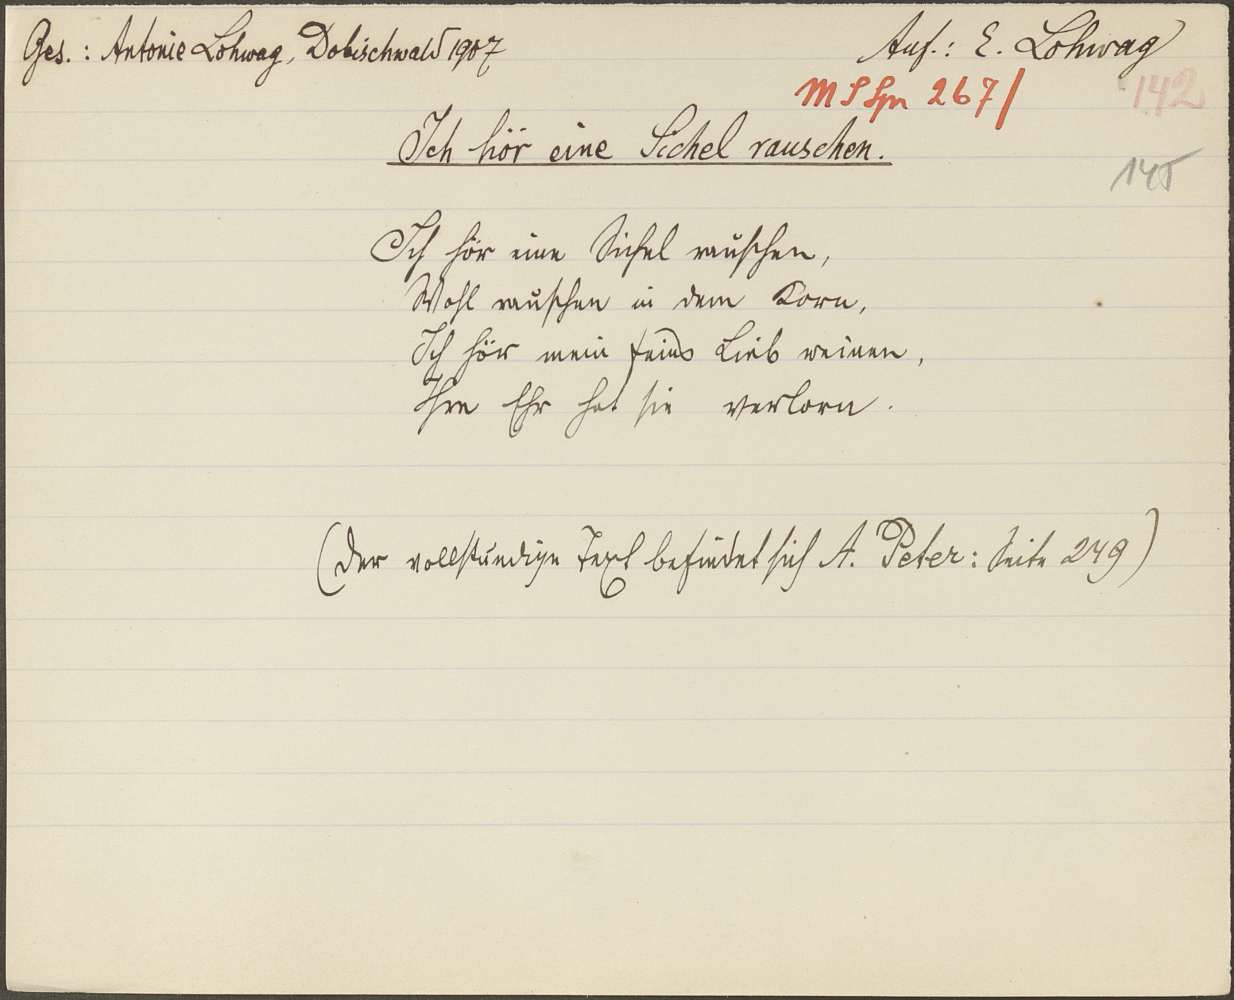 Ges.: Antonie Lohwag, Dobischwald 1907
Auf.: E. Lohwag
142
Ich hör eine Sichel rauschen.
145
Ich hör eine Sichel rauschen,
Wohl rauschen in dem Korn,
Ich hör mein feins Lieb weinen,
Ihre Ehr hat sie verlorn.
(Der vollständige Text befindet sich A. Peter: Seite 249)